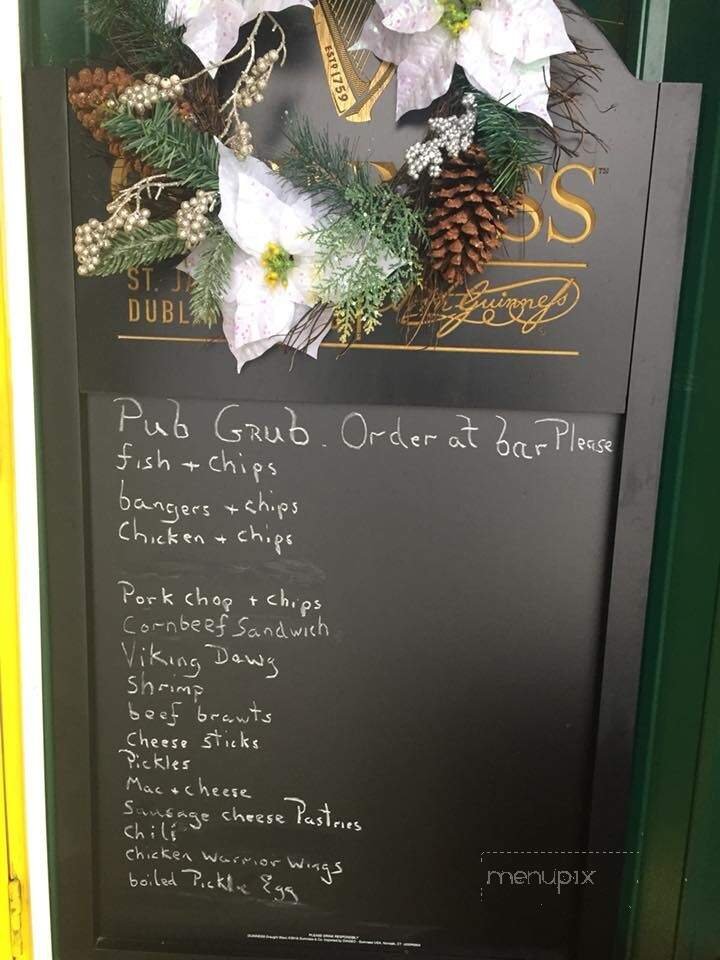 ESTD 1759
SS™
ST. JA
DUBL
Guinness
Pub Grub. Order at bar Please
fish + chips
bangers + chips
Chicken + chips
Pork chop + chips
Cornbeef Sandwich
Viking Dawg
Shrimp
beef brawts
Cheese sticks
Pickles
Mac + cheese
Sausage cheese Pastries
Chili
chicken Warrior Wings
boiled Pickle Egg
menupix
PLEASE DRINK RESPONSIBLY